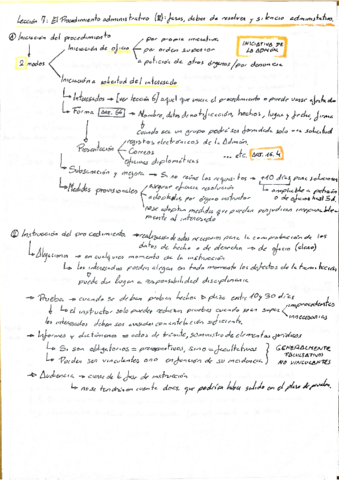 Lección 7: El Procedimiento administrativo (II): fases, deber de resolver y silencio administrativo
① Iniciación del procedimiento
2 modos
Iniciación de oficio
por propia iniciativa
por orden superior
a petición de otros órganos/por denuncia
INICIATIVA DE LA ADMÓN
Iniciación a solicitud del interesado
Interesados → [ver lección 6] aquel que inicia el procedimiento o pueda verse afectado
Forma [ART. 66] → Nombre, datos de notificación, hechos, lugar y fecha, firma
cuando sea un grupo podrá ser formulada solo una solicitud
Presentación
registros electrónicos de la Admón.
Correos
oficinas diplomáticas
... etc. ART. 16.4
Subsanación y mejora → Si no reúne los requisitos → +10 días para solucionar
ampliable a petición o de oficio hasta 5 d.
Medidas provisionales
asegurar eficacia resolución
adoptadas por órgano instructor
no se adoptan medidas que puedan perjudicar irreparablemente al interesado
② Instrucción del procedimiento → realización de actos necesarios para la comprobación de los datos de hecho o de derecho → de oficio
Alegaciones → en cualquier momento de la instrucción
los interesados pueden alegar en todo momento los defectos de la tramitación
puede dar lugar a responsabilidad disciplinaria
→ Prueba → cuando se deban probar hechos → plazo entre 10 y 30 días
el instructor solo puede rechazar pruebas cuando sean
improcedentes
innecesarias
los interesados deben ser avisados con antelación suficiente.
→ Informes y dictámenes → actos de trámite, son juicio de elementos jurídicos
Si son obligatorios = preceptivos, sino = facultativos
Pueden ser vinculantes o no en función de su incidencia
GENERALMENTE FACULTATIVOS NO VINCULANTES
→ Audiencia → cierre de la fase de instrucción
no se tendrán en cuenta docs que podrían haber salido en el plazo de prueba.